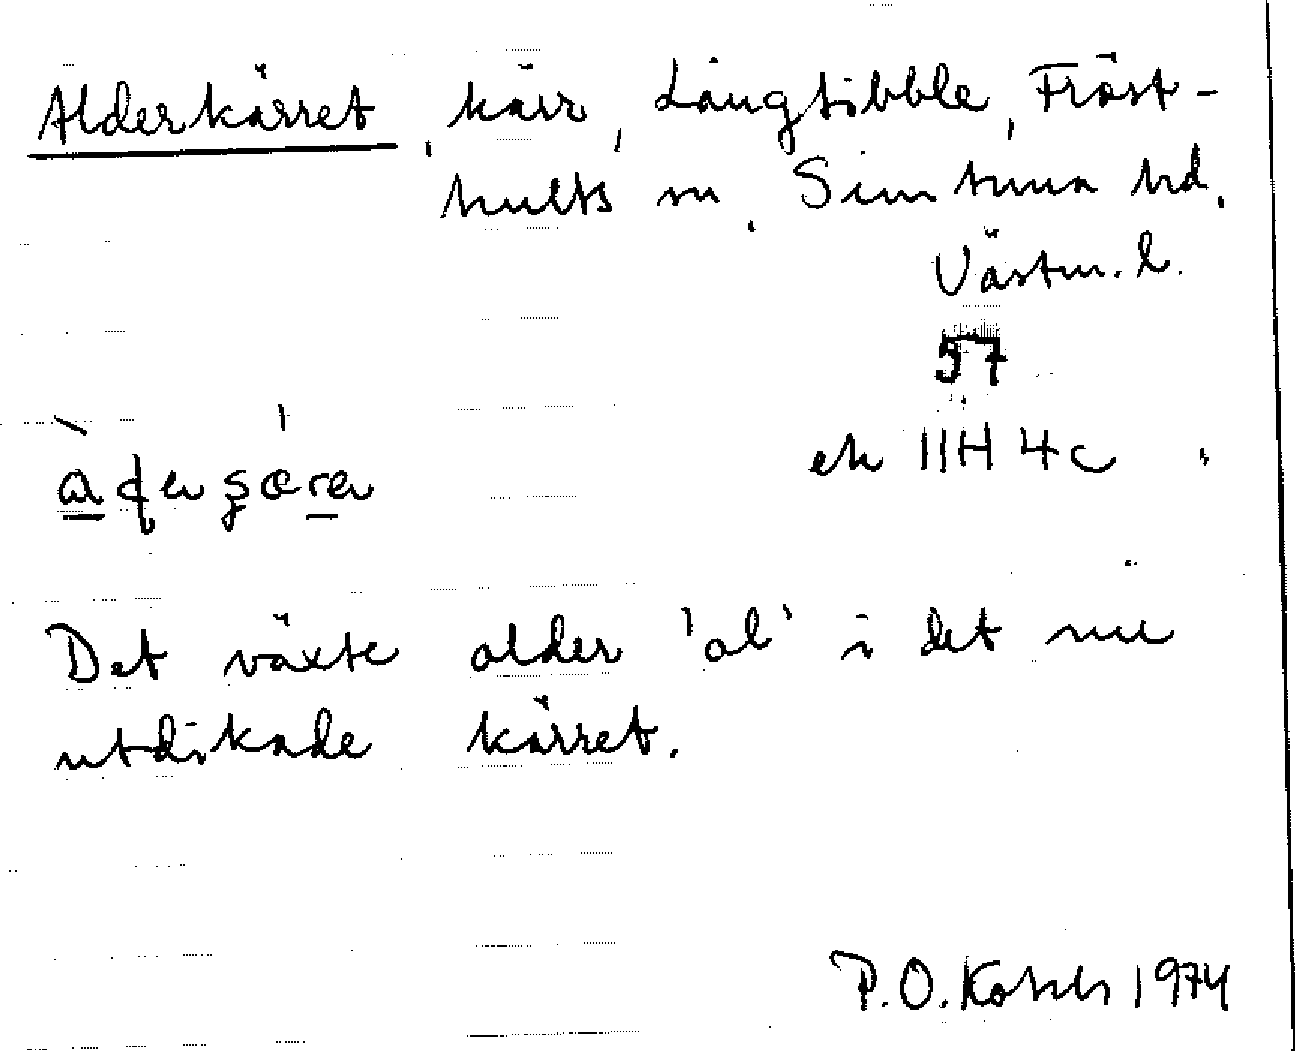 Alderkärret, kärr, Långtibble, Fröst-
hults sn. Simtuna hd.
Västm. l.
57
ek 11H 4c
Det växte alder 'al' i det nu
utdikade kärret.
P.O. 1974